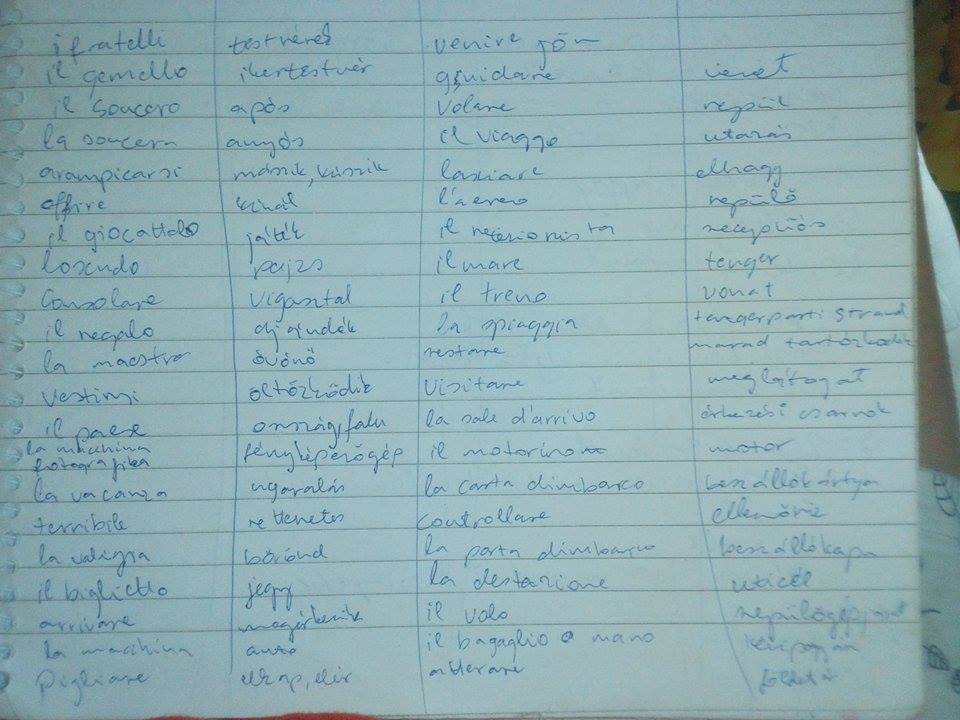 i fratelli testvérek venire jön
il gemello ikertestvér guidare vezet
il soucero após volare repül
la soucera anyós il viaggo utazás
arampicarsi mászik, kúszik lasciare elhagy
offire kínál l'aereo repülő
il giocattolo játék il rezesionista recepciós
loscudo pajzs il mare tenger
Consolare vigasztal il treno vonat
il regalo ajándék la spiaggia tengerparti strand
la maestra óvónő restare marad tartózkodik
vestirsi öltözködik visitare meglátogat
il paese ország, falu la sale d'arrivo érkezési csarnok
la macchina fotografika fényképezőgép il motorino motor
la vacanza nyaralás la carta dimbarco beszállókártya
terribile rettenetes controllare ellenőriz
la valigia bőrönd la porta dimbarco beszállókapu
il biglietto jegy la destazione uticél
arrivare megérkezik il volo repülőgépjárat
la macchina autó il bagaglio a mano kézipoggyász
pigliare elkap, elér atterare